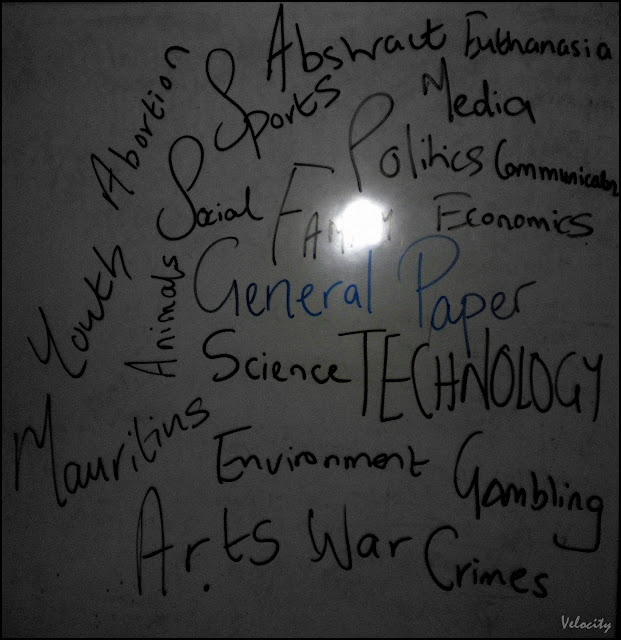 Abstract Euthanasia
Sports Media
Abortion
Politics Communication
Social Family Economics
Youth
Animals
General Paper
Science TECHNOLOGY
Mauritius
Environment Gambling
Arts War Crimes
Velocity